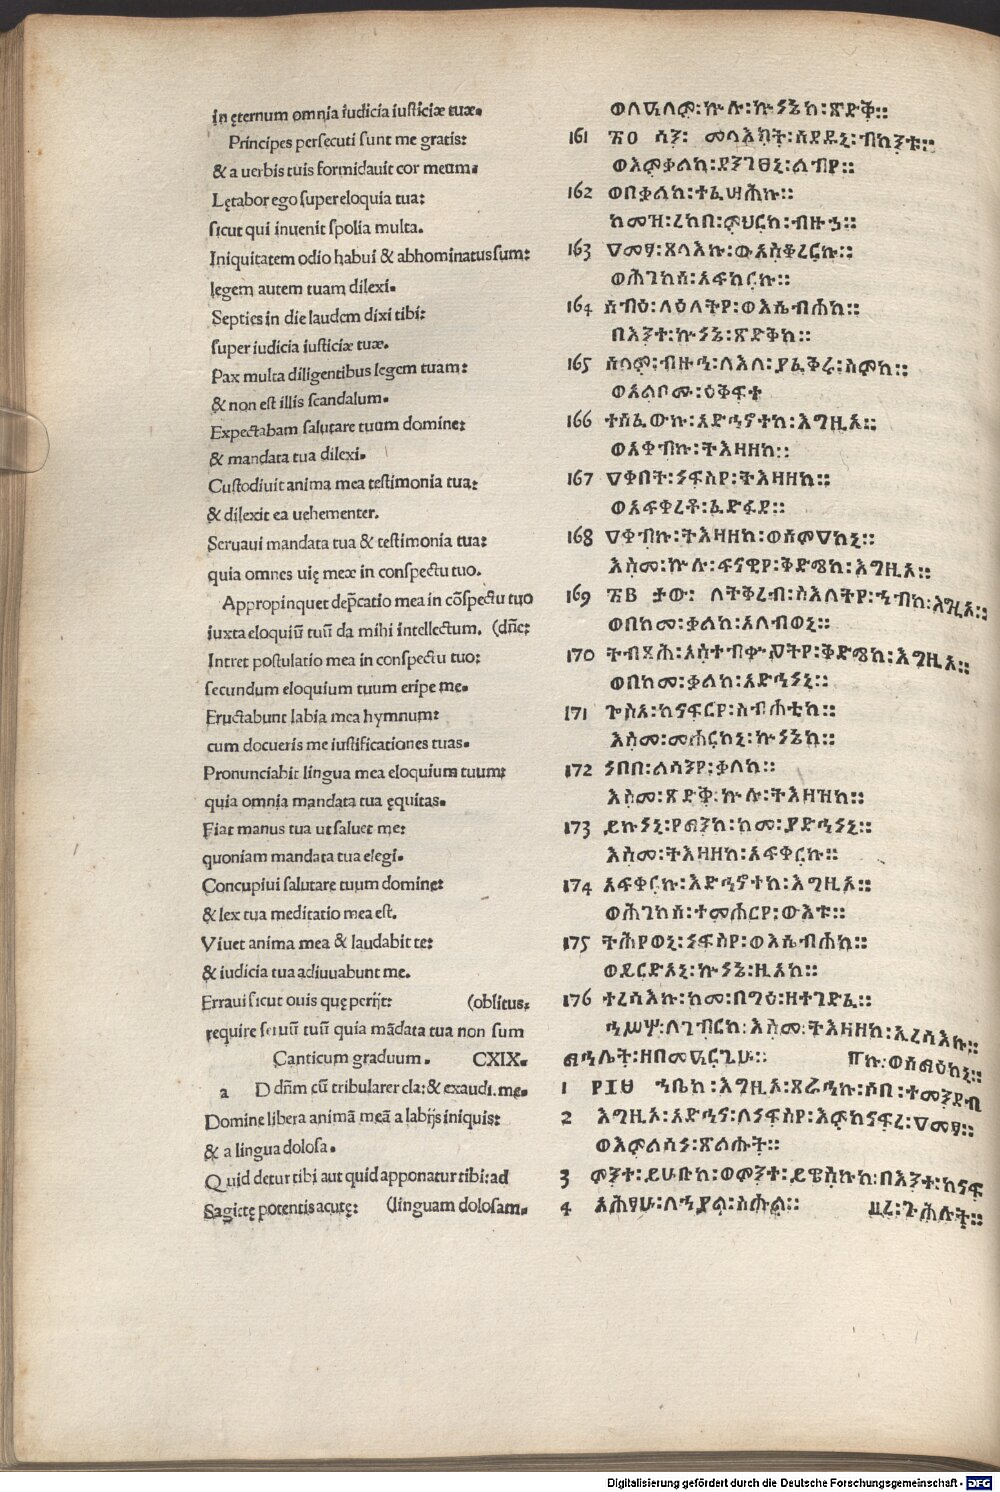 in ęternum omnia iudicia iusticiæ tuæ.
Principes persecuti sunt me gratis:
& a uerbis tuis formidauit cor meum.
Lętabor ego super eloquia tua:
sicut qui inuenit spolia multa.
Iniquitatem odio habui & abhominatus sum:
legem autem tuam dilexi.
Septies in die laudem dixi tibi:
super iudicia iusticiæ tuæ.
Pax multa diligentibus legem tuam:
& non est illis scandalum.
Expectabam salutare tuum domine:
& mandata tua dilexi.
Custodiuit anima mea testimonia tua:
& dilexit ea uehementer.
Seruaui mandata tua & testimonia tua:
quia omnes uię meæ in conspectu tuo.
Appropinquet dep̃catio mea in cōspectu tuo
iuxta eloquiū tuū da mihi intellectum. (dñe:
Intret postulatio mea in conspectu tuo:
secundum eloquium tuum eripe me.
Eructabunt labia mea hymnum:
cum docueris me iustificationes tuas.
Pronunciabit lingua mea eloquium tuum:
quia omnia mandata tua ęquitas.
Fiat manus tua ut saluet me:
quoniam mandata tua elegi.
Concupiui salutare tuum domine:
& lex tua meditatio mea est.
Viuet anima mea & laudabit te:
& iudicia tua adiuuabunt me.
Erraui sicut ouis quę perijt: (oblitus.
require seruū tuū quia mādata tua non sum
Canticum graduum. CXIX.
a D dñm cū tribularer cla: & exaudi. me.
Domine libera animā meā a labijs iniquis:
& a lingua dolosa.
Quid detur tibi aut quid apponatur tibi: ad
Sagittę potentis acutę: (linguam dolosam.
ወለዓለም፡ኵሉ፡ኵነኔከ፡ጽድቅ።
161 ፳፩ ሳን፡ መላእክት፡ሰደዱኒ፡ብከንቱ።
ወእምቃልከ፡ደንገፀኒ፡ልብየ።
162 ወበቃልከ፡ተፈሣሕኩ።
ከመዝ፡ረከበ፡ምህርከ፡ብዙኀ።
163 ዐመፃ፡ጸላእኩ፡ወአስቆረርኩ።
ወሕገከሰ፡አፍቀርኩ።
164 ስብዕ፡ለዕለትየ፡ወእሴብሐከ።
በእንተ፡ኵነኔ፡ጽድቅከ።
165 ሰላም፡ብዙኅ፡ለእለ፡ያፈቅሩ፡ስምከ።
ወአልቦሙ፡ዕቅፍተ
166 ተሰፈውኩ፡አድኅኖተከ፡እግዚኦ።
ወአቀብኩ፡ትእዛዘከ።
167 ዐቀበት፡ነፍስየ፡ትእዛዘከ።
ወአፍቀረቶ፡ፈድፋደ።
168 ዐቀብኩ፡ትእዛዘከ፡ወስምዐከኒ።
እስመ፡ኵሉ፡ፍናዊየ፡ቅድሜከ፡እግዚኦ።
169 ለትቅረብ፡ስእለትየ፡ኀቤከ፡እግዚኦ።
ወበከመ፡ቃልከ፡አለብወኒ።
170 ትብጻሕ፡አስተብቍዖትየ፡ቅድሜከ፡እግዚኦ።
ወበከመ፡ቃልከ፡አድኅነኒ።
171 ጐስዐ፡ከናፍርየ፡ስብሐቲከ።
እስመ፡መሐርከኒ፡ኵነኔከ።
172 ነበበ፡ልሳንየ፡ቃለከ።
እስመ፡ጽድቅ፡ኵሉ፡ትእዛዝከ።
173 ይኩነኒ፡የማንከ፡ከመ፡ያድኅነኒ።
እስመ፡ትእዛዘከ፡አፍቀርኩ።
174 አፍቀርኩ፡አድኅኖተከ፡እግዚኦ።
ወሕገከሰ፡ተመሐርየ፡ውእቱ።
175 ትሕየወኒ፡ነፍስየ፡ወእሴብሐከ።
ወይርድአኒ፡ኵነኔ፡ዚአከ።
176 ተረሳእኩ፡ከመ፡በግዕ፡ዘተገድፈ።
ኀሥሦ፡ለገብርከ፡እስመ፡ትእዛዘከ፡ኢረሳእኩ።
ማኅሌት፡ዘበመዓርጊሁ። ጸኩ፡ወሰማዕከኒ።
1 ኀቤከ፡እግዚኦ፡ጸራኅኩ፡ሶበ፡ተመንደብ
2 እግዚኦ፡አድኅና፡ለነፍስየ፡እምከናፍረ፡ዐመፃ።
ወእምልሳነ፡ጽልሑት።
3 ምንተ፡ይሁቡከ፡ወምንተ፡ይዌስኩከ፡በእንተ፡ከናፍ
4 አሕፃሁ፡ለኀያል፡ስሑል። ረ፡ጕሕሉት።